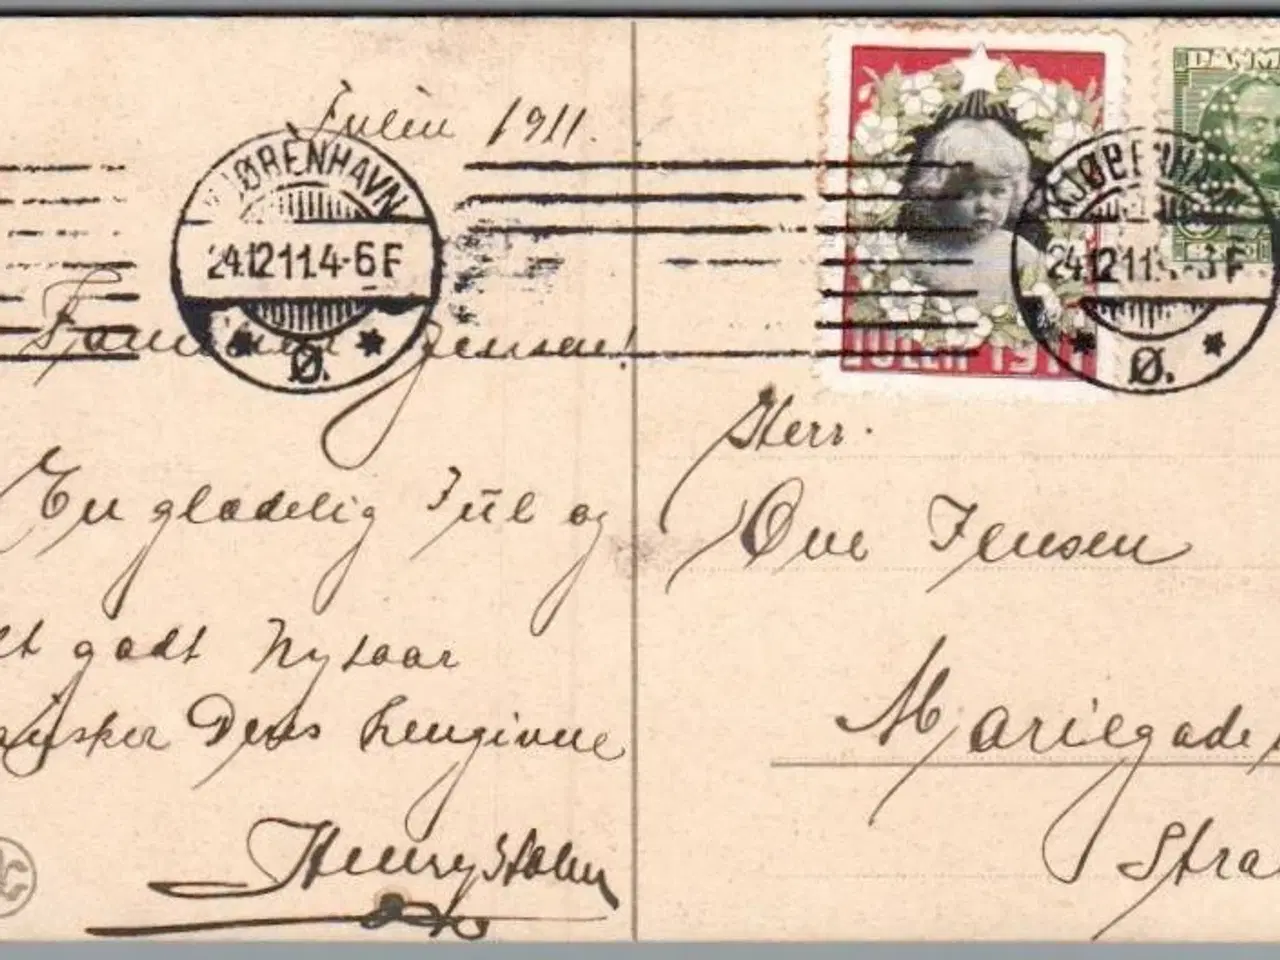 Julen 1911.
KJØBENHAVN
24.12.11.4-6 F
Ø.
Familien Jensen!
En glædelig Jul og
et godt Nytaar
ønsker Deres hengivne
Henry Holm
DANM
JULEN 1911
KJØBENHAVN
24.12.11.
F
Ø.
Herr.
Ove Jensen
Mariegade
Stra